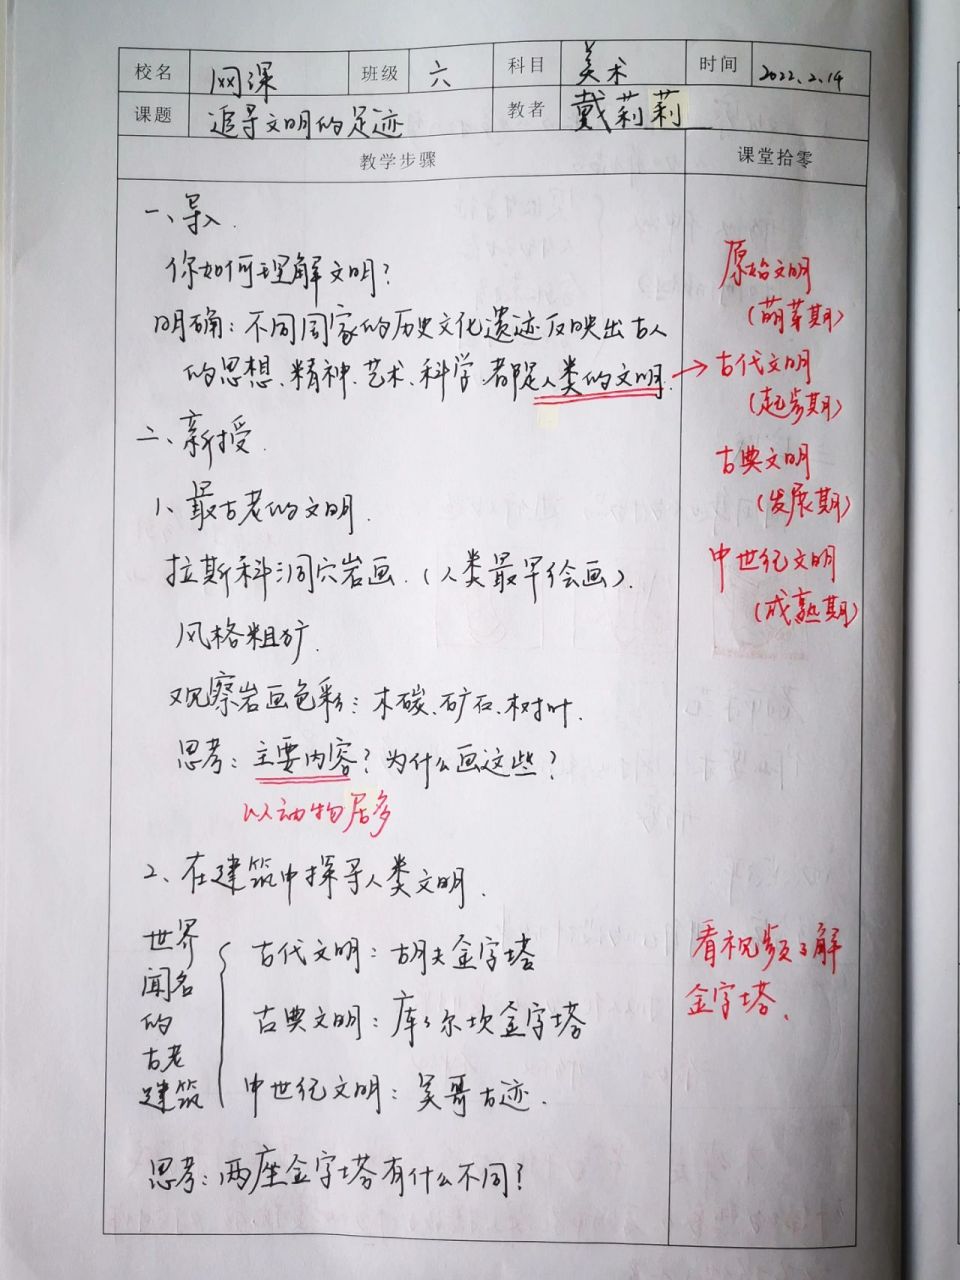 校名 网课 班级 六 科目 美术 时间 2022.2.14
课题 追寻文明的足迹 教者 戴莉莉
教学步骤 课堂拾零
一、导入.
你如何理解文明?
明确:不同国家的历史文化遗迹反映出古人
的思想、精神、艺术、科学,都是人类的文明.
二、新授.
1、最古老的文明.
拉斯科洞穴岩画.(人类最早绘画).
风格粗犷.
观察岩画色彩:木碳、矿石、树叶.
思考:主要内容?为什么画这些?
以动物居多
2、在建筑中探寻人类文明.
世界
闻名
的
古老
建筑
古代文明:胡夫金字塔
古典文明:库库尔坎金字塔
中世纪文明:吴哥古迹.
思考:两座金字塔有什么不同?
原始文明
(萌芽期)
→古代文明
(起步期)
古典文明
(发展期)
中世纪文明
(成熟期)
看视频了解
金字塔.